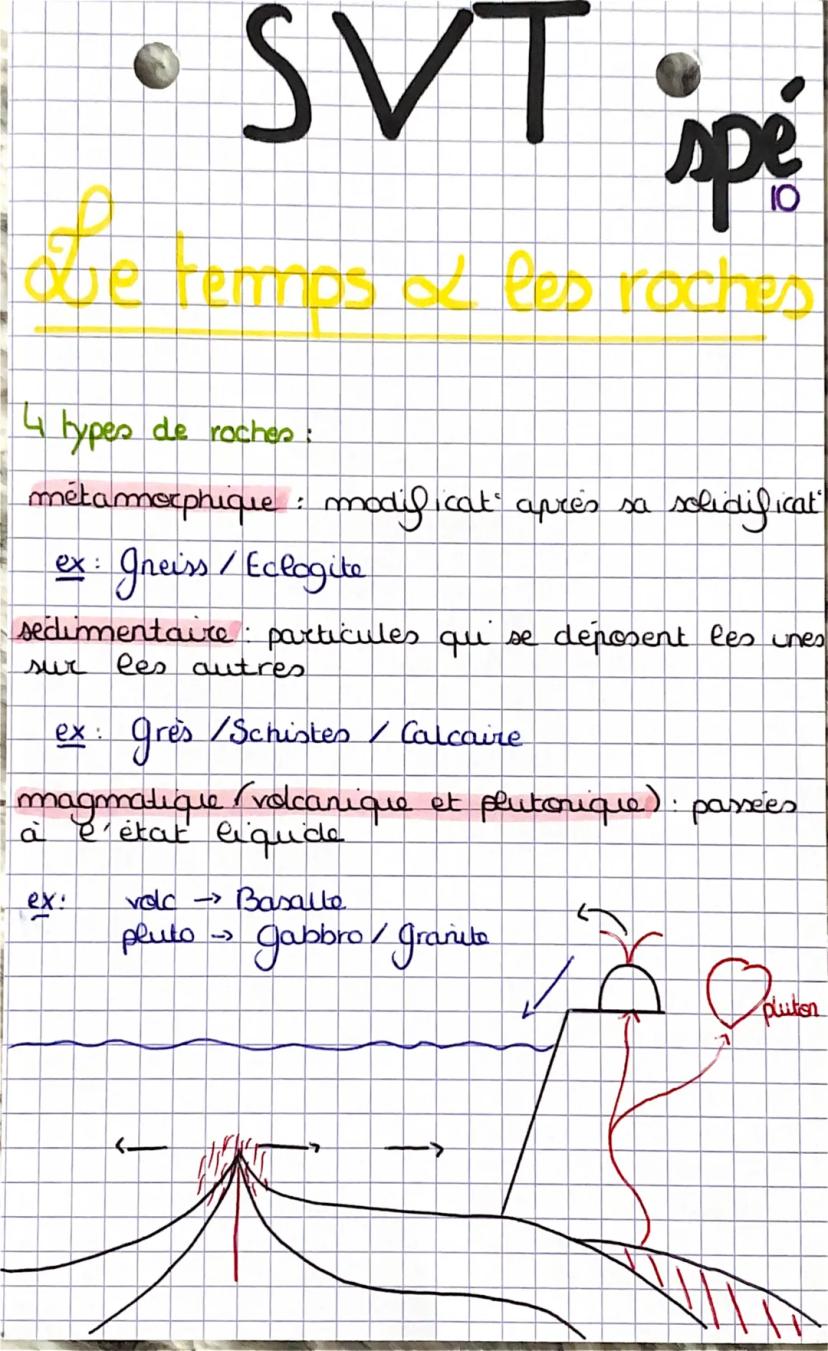 SVT
spé
10
Le temps & les roches
4 types de roches :
métamorphique : modificat° après sa solidificat°
ex : Gneiss / Eclogite
sédimentaire : particules qui se déposent les unes
sur les autres
ex : Grès / Schistes / Calcaire
magmatique (volcanique et plutonique) : passées
à l'état liquide
ex : volc → Basalte
pluto → Gabbro / Granite
pluton